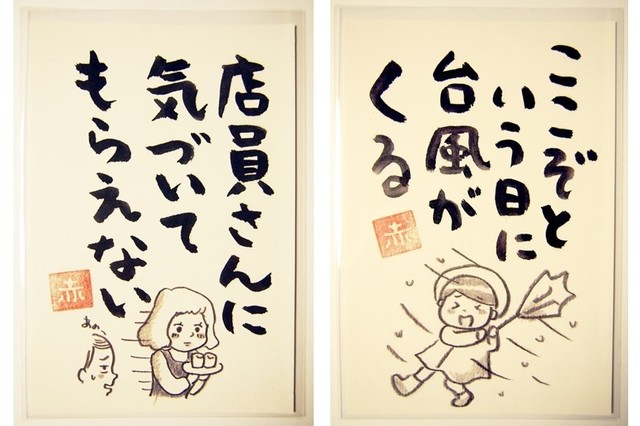 店員さんに
気づいて
もらえない
赤
あの、
ここぞと
いう日に
台風が
くる
赤